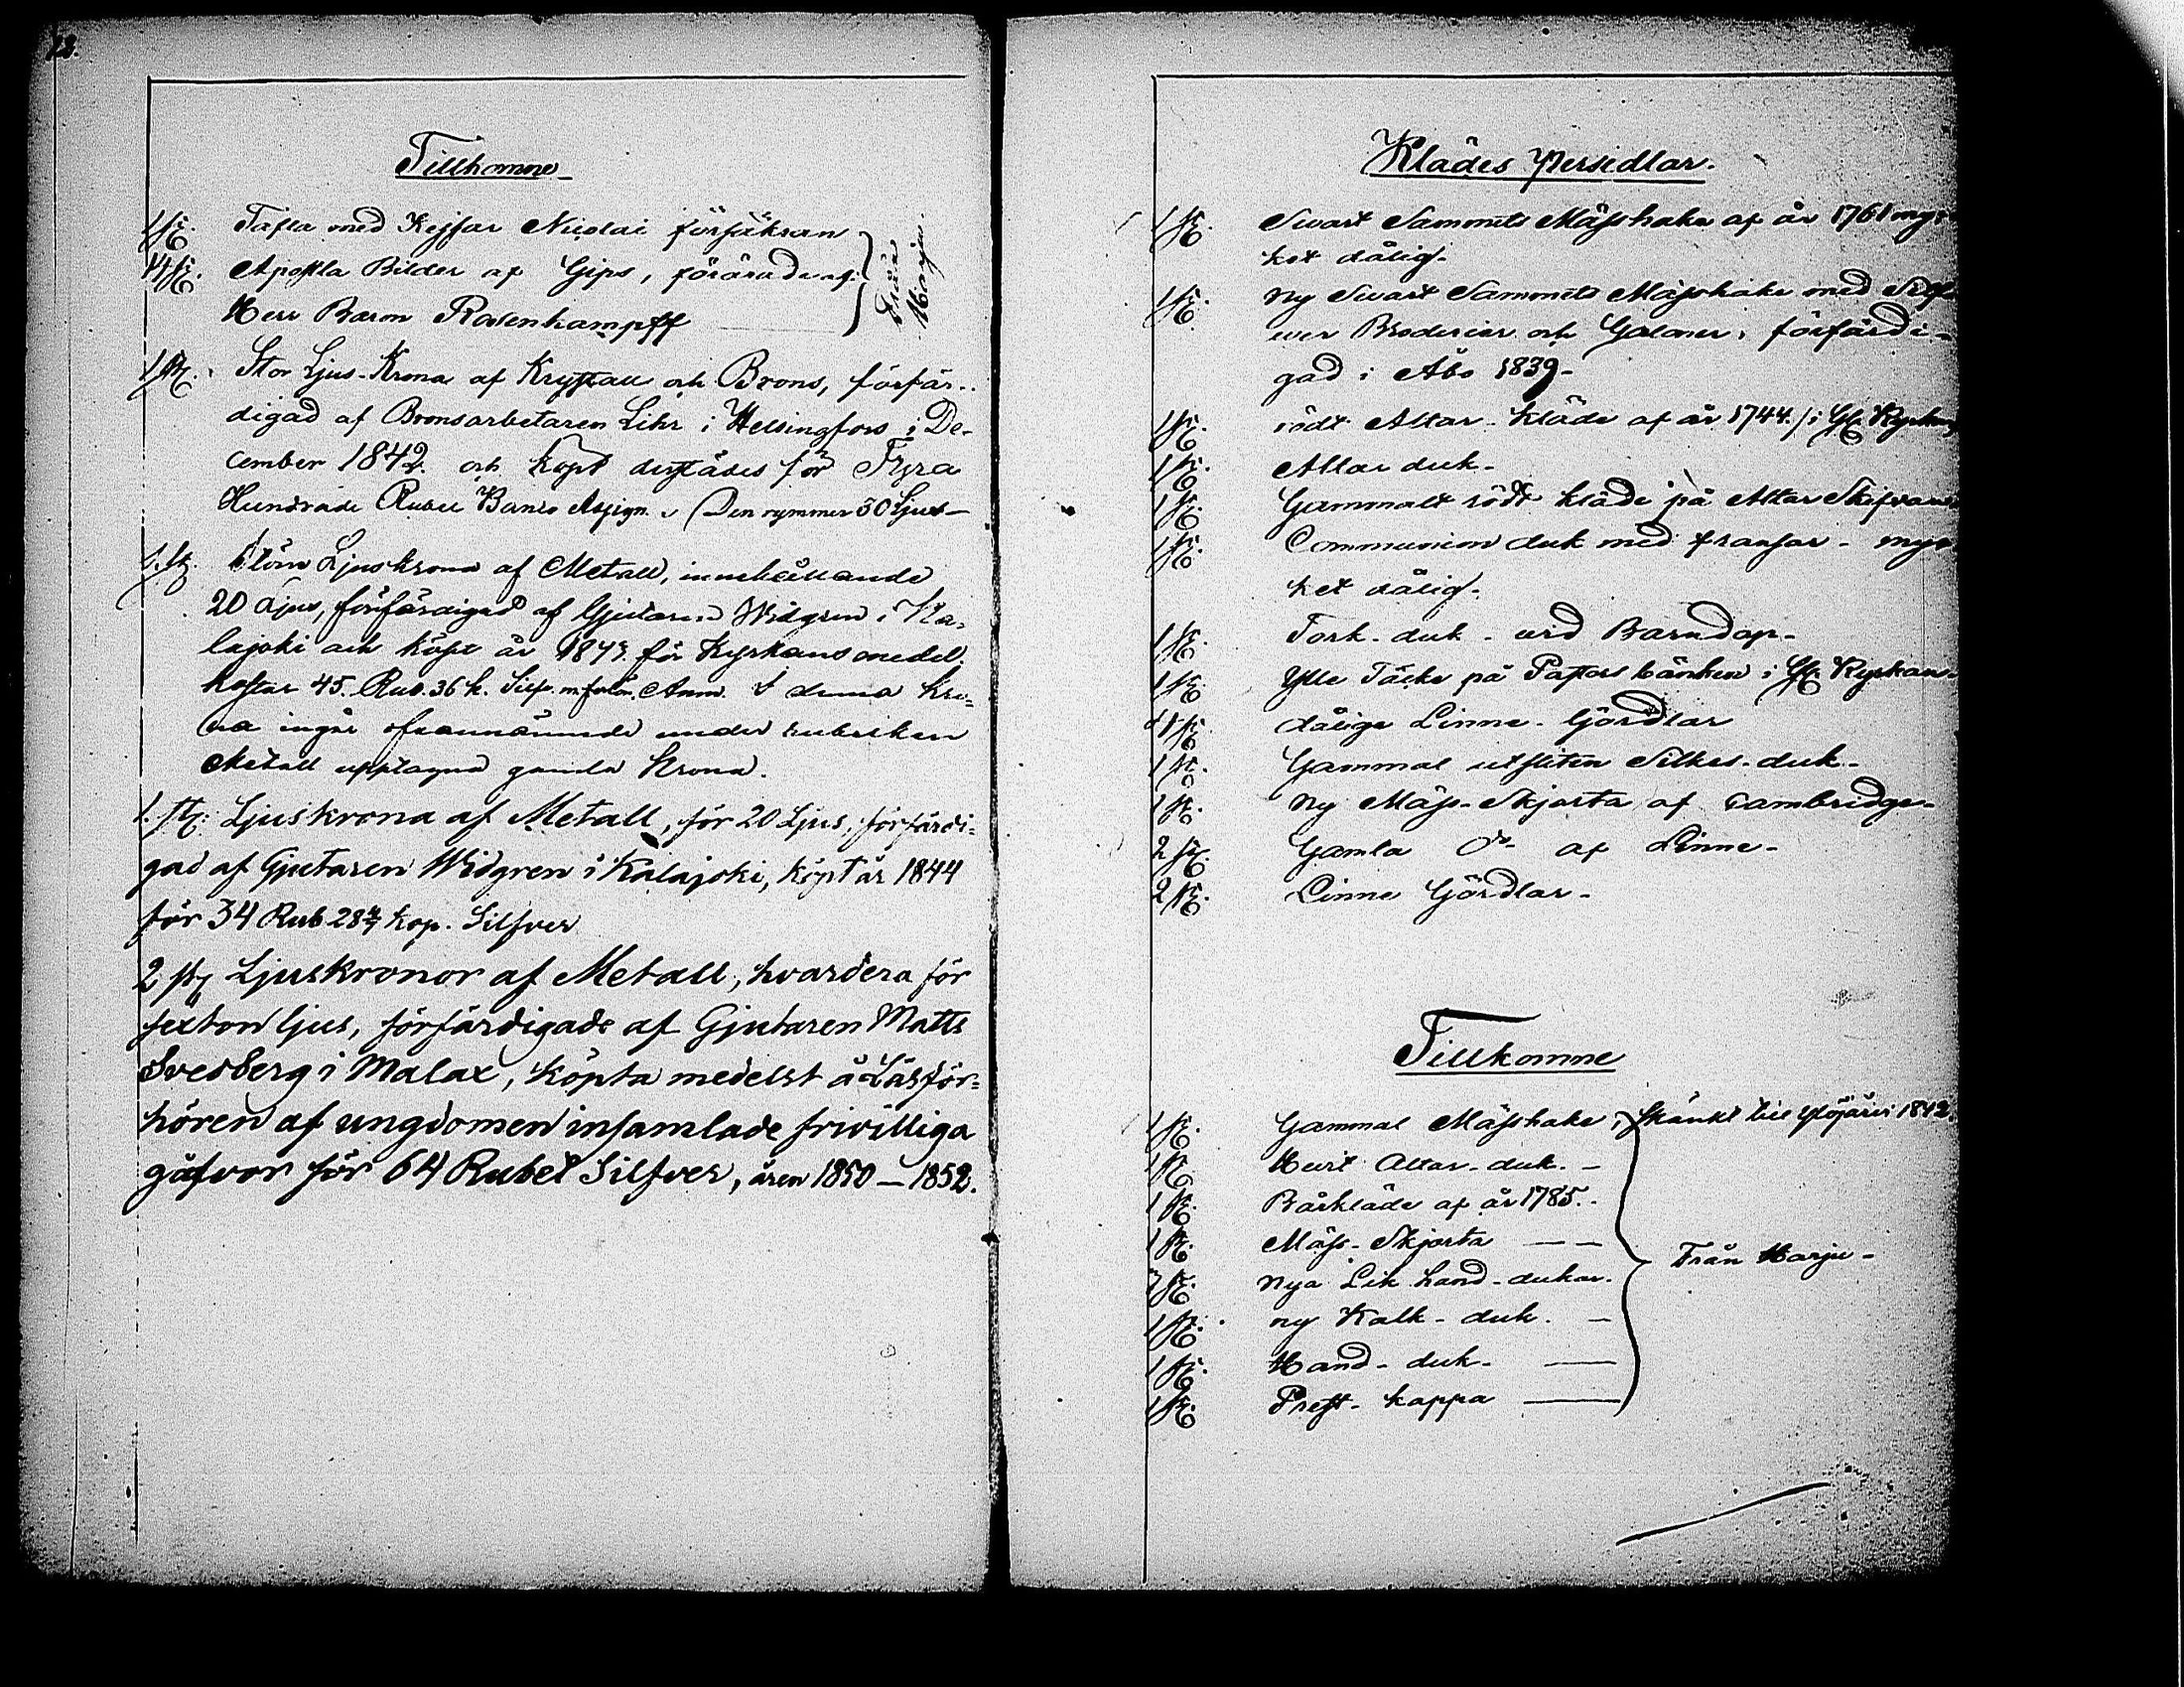 12.
Tillkomne
1 st. Tafla med Kejsar Nicolai försäkran
14 st. Apostla Bilder af Gips, förärade af
Herr Baron Rosenkampff
Från Harju
1 st. Stor Ljus-Krona af Krystall och Brons, förfär-
digad af Bronsarbetaren Lihr i Helsingfors i De-
cember 1842 och köpt derstädes för Fyra
Hundrade Rubel Banco Assign. Den rymmer 30 Ljus-
1 st. större Ljuskrona af Metall, innehållande
20 Ljus, förfärdigad af Gjutaren Widgren i Ka-
lajoki och köpt år 1843 för Kyrkans medel.
kostar 45. Rub. 36 k. Silf. Anm. I denna Kro-
na ingår ofvannämnde under rubriken
Metall upptagna gamla Krona.
1. st. Ljuskrona af Metall, för 20 Ljus, förfärdi-
gad af Gjutaren Widgren i Kalajoki, köpt år 1844
för 34 Rub 28 4/7 kop. Silfver
2 st. Ljuskronor af Metall, hvardera för
sexton ljus, förfärdigade af Gjutaren Matts
Svedberg i Malax, köpta medelst å Läsför-
hören af ungdomen insamlade frivilliga
gåfvor för 64 Rubel Silfver, åren 1850 — 1852.
Klädes Persedlar.
1 st. Swart Sammets Mässhake af år 1761 myc-
ket dålig-
1 st. Ny Swart Sammets Mässhake med Silf-
wer Broderier och Galoner, förfärdi-
gad i Åbo 1839-
1 st. rödt Altar-kläde af år 1744. / i Gl. Kyrkan
1 st. Altar duk-
1 st. Gammalt rödt kläde på Altar Skifvan
1 st. Communion duk med fransar - myc-
ket dålig-
1 st. Tork-duk - wid Barndop-
1 st. Ylle Täcke på Pastors bänken i Gl. Kyrkan-
4 st. dålige Linne-Gördlar
1 st. Gammal utsliten Silkes-duk-
1 st. Ny Mäss-Skjorta af Cambridge-
2 st. Gamla D:o af Linne-
2 st. Linne Gördlar-
Tillkomne
1 st. Gammal Mässhake, skänkt till Ylöjärvi 1842.
1 st. Hwit Altar-duk. -
1 st. Bårkläde af år 1785.-
1 st. Mäss-Skjorta — —
Från Harju-
3 st. Nya Lik hand-dukar.
1 st. ny Kalk-duk. -
1 st. Hand-duk- —
1 st. Prest-kappa —